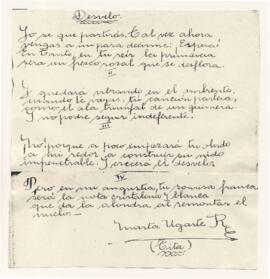 Desvelo.
Yo se que partirás. Tal vez ahora
vengas a mi para decirme: Espera!
En tanto, en tu reir la primavera
será un fresco rosal que se desflora.
II
Y quedará vibrando en el
cuando te vayas, tu canción
como el ala triunfal de una quimera
Y no podre seguir indiferente.
III
porque a poco empezará tu olvido
a mi redor a construir su nido
impenetrable. Y crecerá el desvelo
IV
Pero en mi angustia, tu sonrisa franca
será la nota cristalina y blanca
que da la alondra al remontar el
vuelo.
Marta Ugarte R
(Tita)